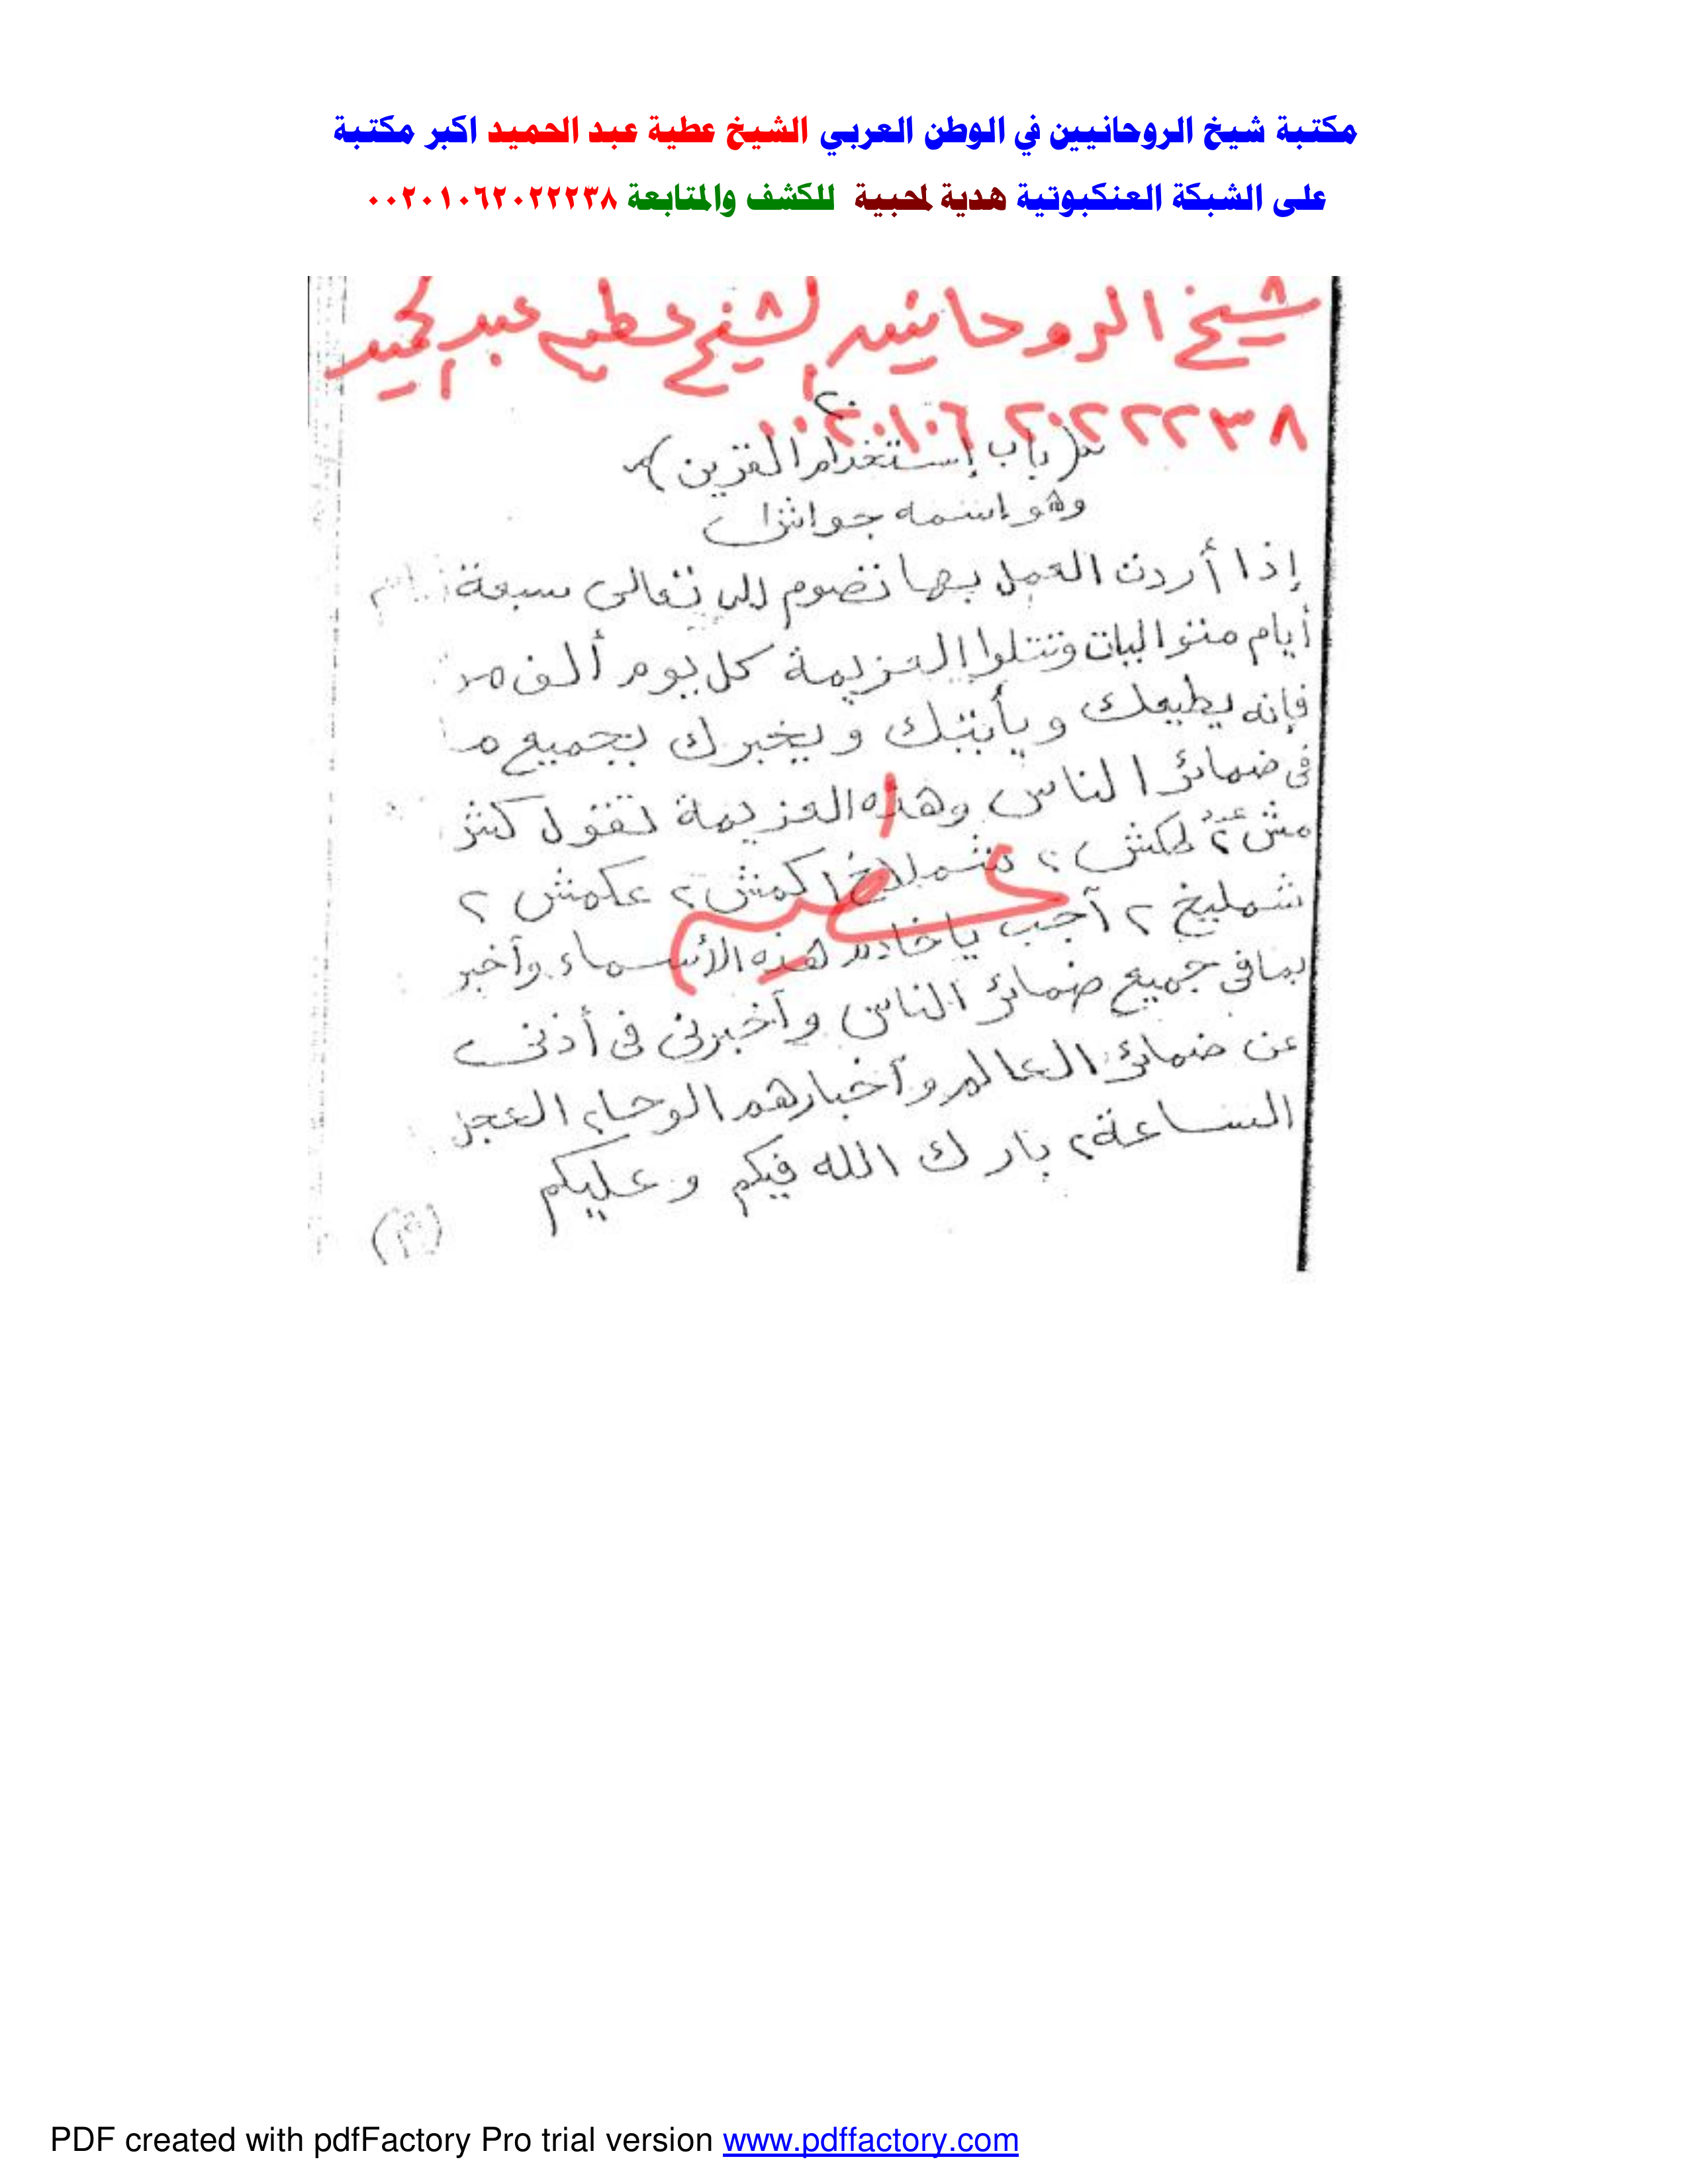 مكتبة شيخ الروحانيين في الوطن العربي الشيخ عطية عبد الحميد اكبر مكتبة
على الشبكة العنكبوتية هدية لمحبية للكشف والمتابعة ٠٠٢٠١٠٦٢٠٢٢٢٣٨
شيخ الروحانيين الشيخ عطيه عبد الحميد
٠٠٢٠١٠٦٢٠٢٢٢٣٨
(باب إستخدام القرين)
وهو اسمه
إذا أردت العمل بها تصوم لله تعالى سبعة
أيام متواليات وتتلوا العزيمة كل يوم ألف
فإنه يطيعك ويأتيك ويخبرك بجميع
فى ضمائر الناس وهذه العزيمة تقول
مش ٢ ٢ اكمش ٢ عكمش ٢
شمليخ ٢ آجب ياخادم هذه الأسماء وآخبر
بمافى جميع ضمائر الناس وآخبرنى فى أذنى
عن ضمائر العالم وآخبارهم الوحا٢ العجل
الساعة٢ بارك الله فيكم وعليكم
عطيه
PDF created with pdfFactory Pro trial version www.pdffactory.com